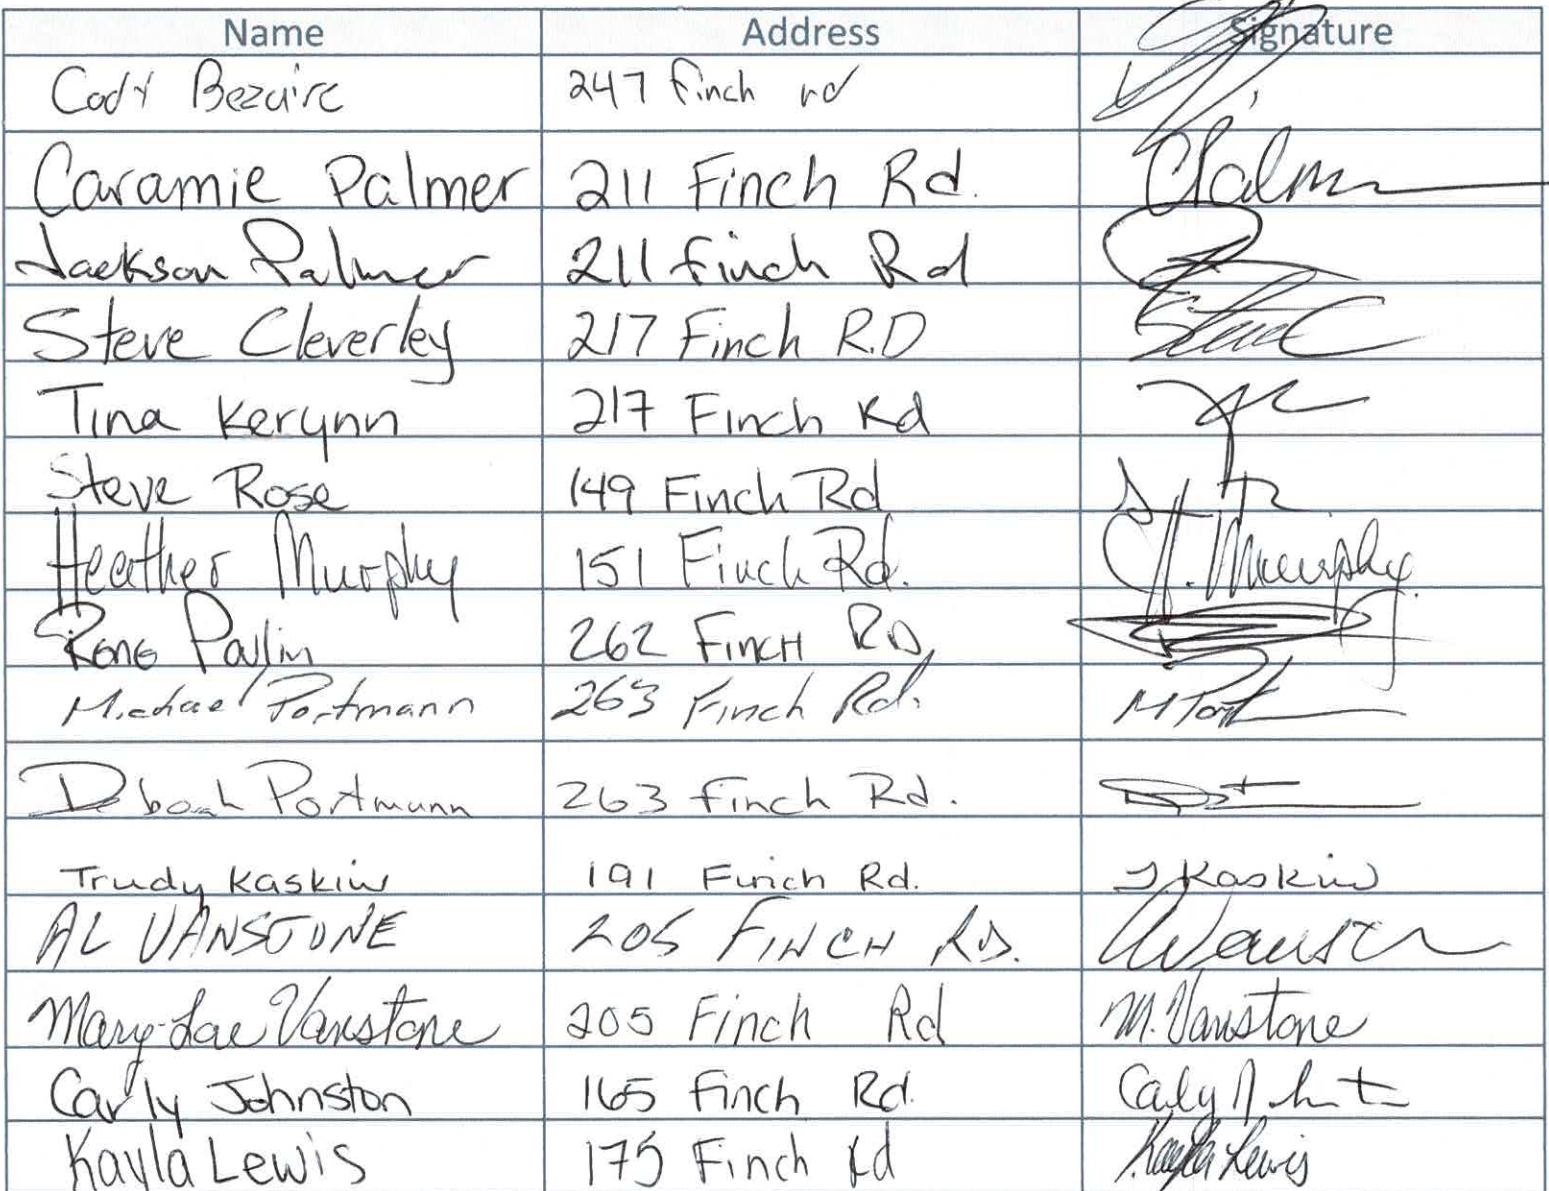 Name Address Signature
Cody Bezaire 247 Finch rd
Caramie Palmer 211 Finch Rd. CPalmer
Jackson Palmer 211 Finch Rd
Steve Cleverley 217 Finch R.D Steve C
Tina Kerynn 217 Finch Rd
Steve Rose 149 Finch Rd
Heather Murphy 151 Finch Rd. H. Murphy
Rene Pavlin 262 FincH RD
Michael Portmann 263 Finch Rd. M Port
Deborah Portmann 263 Finch Rd.
Trudy Kaskiw 191 Finch Rd. T. Kaskiw
AL VANSTONE 205 FINCH RD.
Mary-Lou Vanstone 205 Finch Rd M. Vanstone
Carly Johnston 165 Finch Rd. Carly
Kayla Lewis 175 Finch rd Kayla Lewis